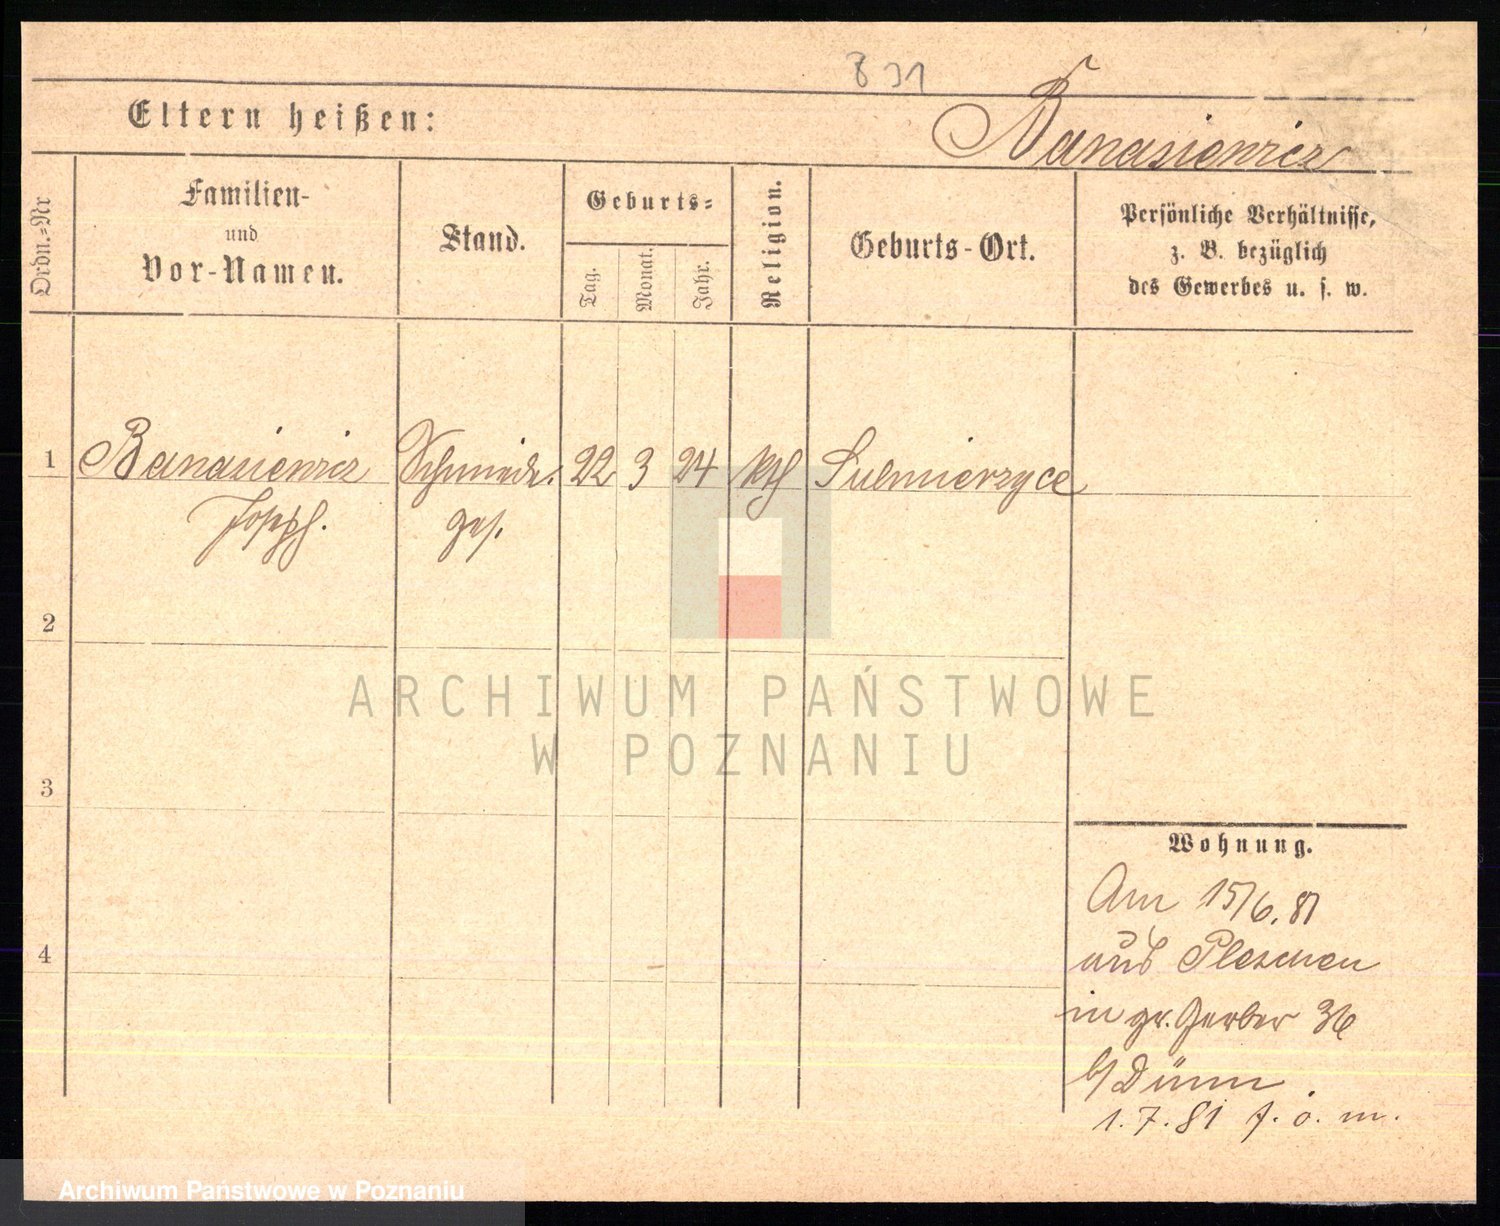 B 31
Eltern heißen:
Banasiewicz
Ordn.=Nr
Familien-
und
Vor-Namen.
Stand.
Geburts=
Tag.
Monat.
Jahr.
Religion.
Geburts-Ort.
Persönliche Verhältnisse,
z. B. bezüglich
des Gewerbes u. s. w.
1 Banasiewicz Schmiede. 22 3 24 kth Sulmierzyce
Joseph. ges.
2
3
4
Wohnung.
Am 15/6. 81
aus Pleschen
in gr. Gerber 36
b/ Dümm.
1. 7. 81 f. o. m.
ARCHIWUM PAŃSTWOWE
W POZNANIU
Archiwum Państwowe w Poznaniu